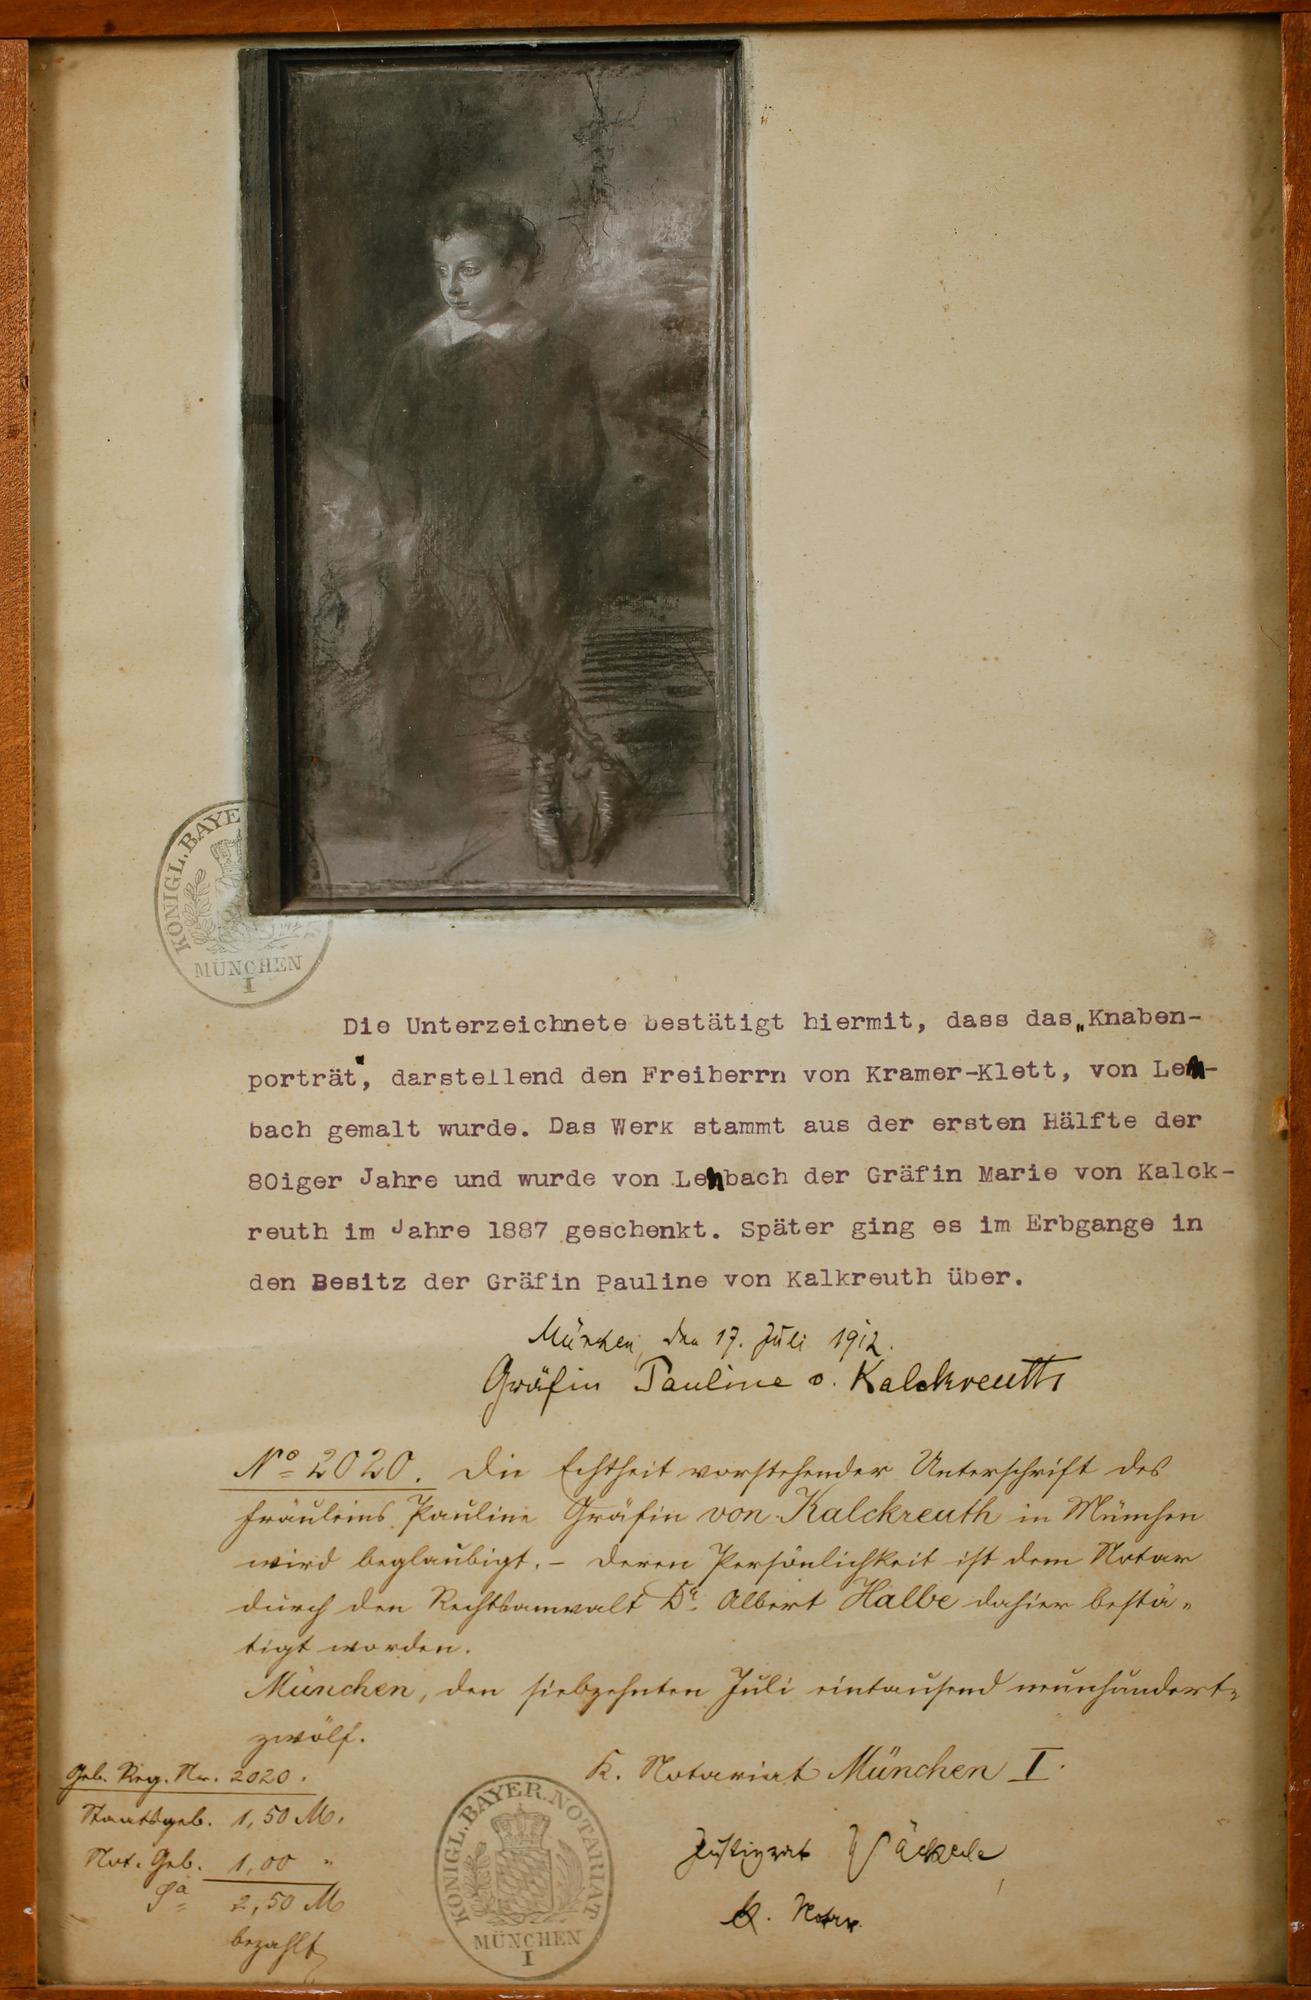 KÖNIGL. BAYE
MÜNCHEN
I
Die Unterzeichnete bestätigt hiermit, dass das „Knaben-
porträt", darstellend den Freiherrn von Kramer-Klett, von Len-
bach gemalt wurde. Das Werk stammt aus der ersten Hälfte der
80iger Jahre und wurde von Lenbach der Gräfin Marie von Kalck-
reuth im Jahre 1887 geschenkt. Später ging es im Erbgange in
den Besitz der Gräfin Pauline von Kalkreuth über.
München, den 17. Juli 1912.
Gräfin Pauline v. Kalckreuth
No 2020. Die Echtheit vorstehender Unterschrift des
Fräuleins Pauline Gräfin von Kalckreuth in München
wird beglaubigt. – Deren Persönlichkeit ist dem Notar
durch den Rechtsanwalt Dr. Albert Halbe dahier bestä-
tigt worden.
München, den siebzehnten Juli eintausend neunhundert-
zwölf.
Geb. Reg. Nr. 2020.
K. Notariat München I.
Staatsgeb. 1,50 M.
Not. Geb. 1,00 "
Sa 2,50 M
bezahlt
KÖNIGL. BAYER. NOTARIAT
MÜNCHEN
I
Justizrat
K. Notar.